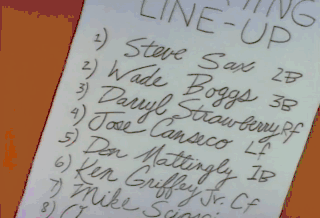 LINE-UP
1) Steve Sax 2B
2) Wade Boggs 3B
3) Darryl Strawberry Rf
4) Jose Canseco Lf
5) Don Mattingly 1B
6) Ken Griffey Jr. Cf
7) Mike
8)